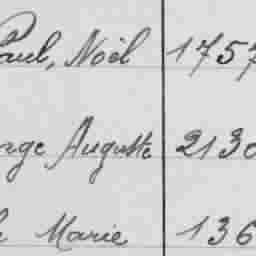 Paul, Noël 1757
rge Auguste 2130
Marie 136